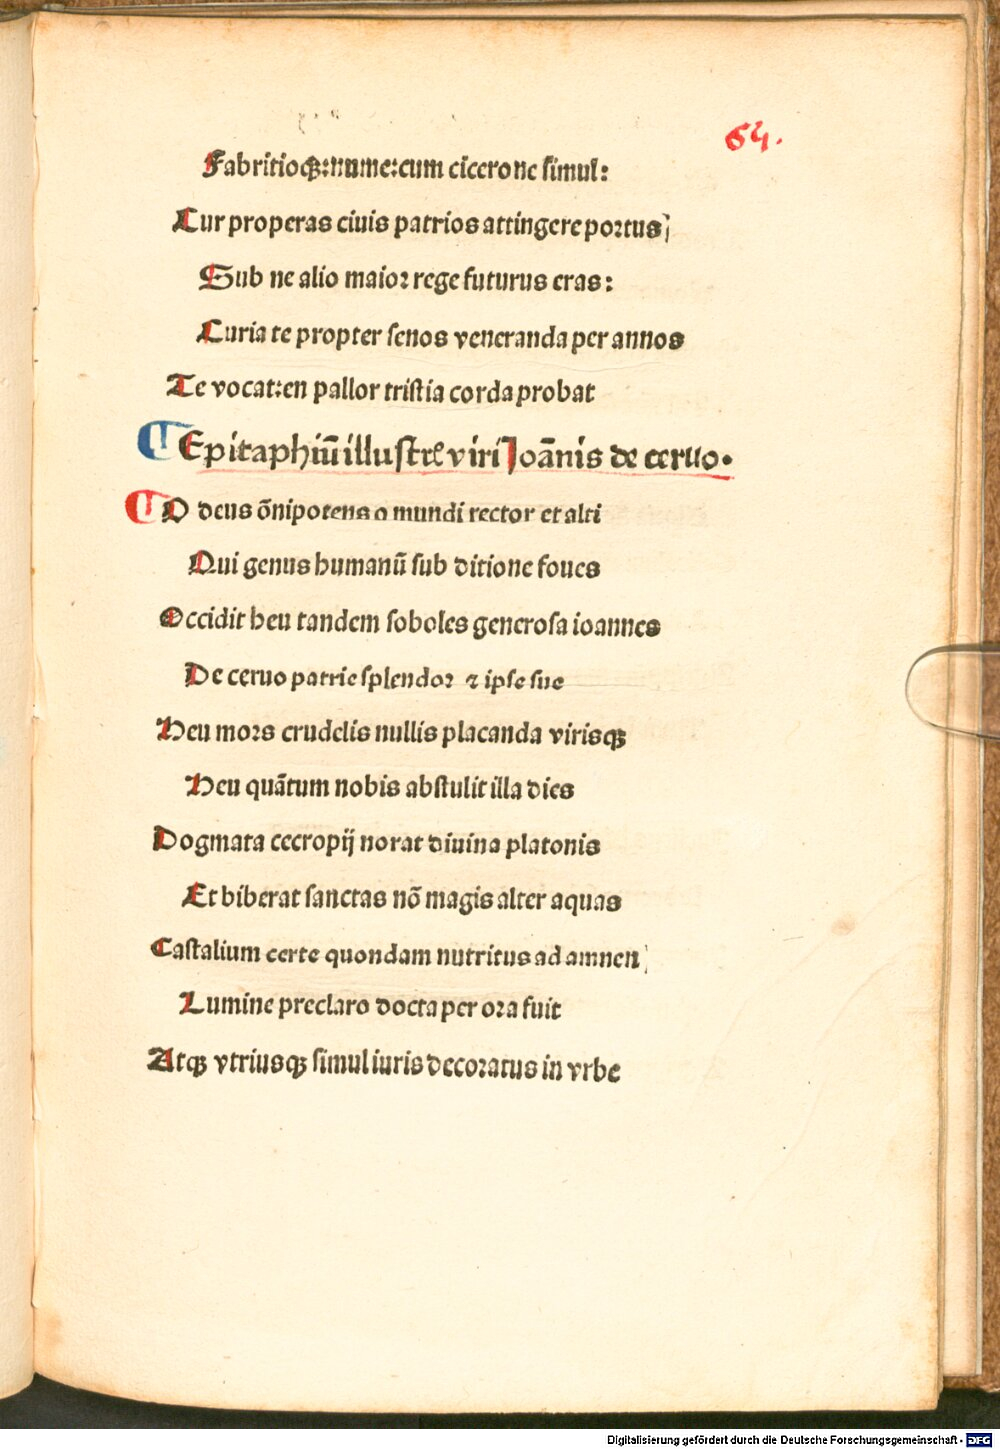 64.
Fabritioqꝫ: nume: cum cicerone simul:
Cur properas ciuis patrios attingere portus;
Sub ne alio maior rege futurus eras:
Curia te propter senos veneranda per annos
Te vocat: en pallor tristia corda probat
Epitaphiū illustrꝭ viri Joānis de ceruo.
O deus ōnipotens o mundi rector et alti
Qui genus humanū sub ditione foues
Occidit heu tandem soboles generosa ioannes
De ceruo patrie splendor ⁊ ipse sue
Heu mors crudelis nullis placanda virisqꝫ
Heu quātum nobis abstulit illa dies
Dogmata cecropij norat diuina platonis
Et biberat sanctas nō magis alter aquas
Castalium certe quondam nutritus ad amnen;
Lumine preclaro docta per ora fuit
Atqꝫ vtriusqꝫ simul iuris decoratus in vrbe
Digitalisierung gefördert durch die Deutsche Forschungsgemeinschaft - DFG